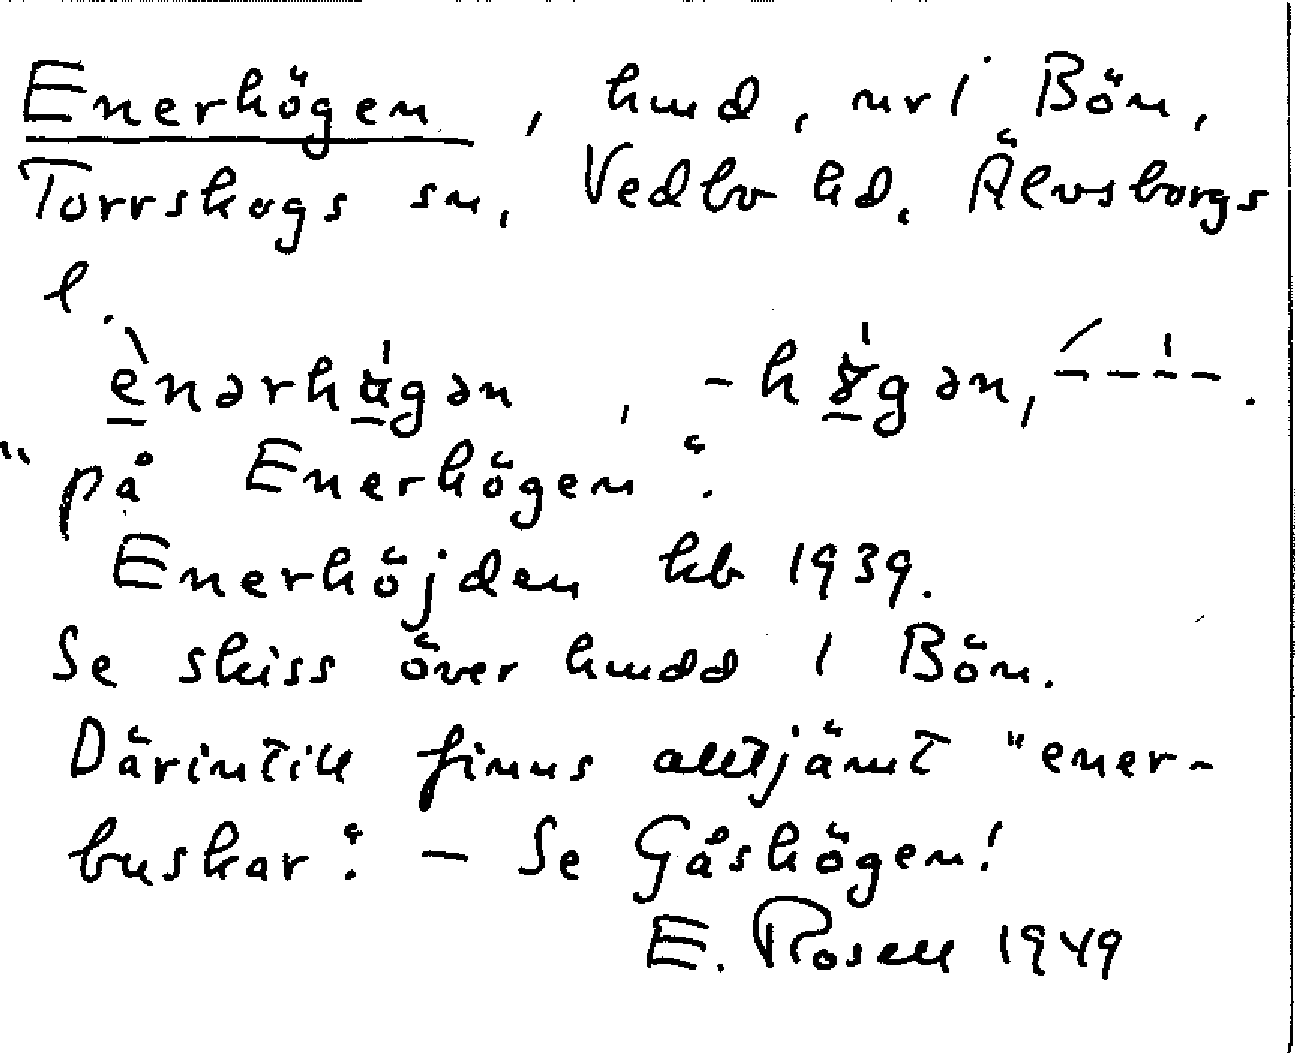 Enerhögen, hmd, nr 1 Bön,
Torrskogs sn, Vedbo hd, Älvsborgs
l.
ènərhøgən, -høgən, ----.
"på Enerhögen".
Enerhöjden kb 1939.
Se skiss över hmdd 1 Bön.
Därintill finns alltjämt "ener-
buskar". – Se Gåshögen!
E. Rosell 1949